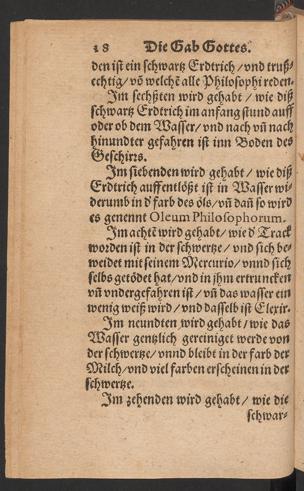 18 Die Gab Gottes.
den ist ein schwartz Erdtrich / vnd truß-
echtig / võ welchē alle Philosophi reden.
Im sechßten wird gehabt / wie diß
schwartz Erdtrich im anfang stund auff
oder ob dem Wasser / vnd nach vñ nach
hinundter gefahren ist inn Boden des
Geschirrs.
Im siebenden wird gehabt / wie diß
Erdtrich auffentlößt ist in Wasser wi-
derumb in d' farb des öls / vñ dañ so wird
es genennt Oleum Philosophorum.
Im achtē wird gehabt / wie d' Track
worden ist in der schwertze / vnd sich be-
weidet mit seinem Mercurio / vnnd sich
selbs getödet hat / vnd in jhm ertruncken
vñ vndergefahren ist / vñ das wasser ein
wenig weiß wird / vnd dasselb ist Elexir.
Im neundten wird gehabt / wie das
Wasser gentzlich gereiniget werde von
der schwertze / vnnd bleibt in der farb der
Milch / vnd viel farben erscheinen in der
schwertze.
Im zehenden wird gehabt / wie die
schwar-